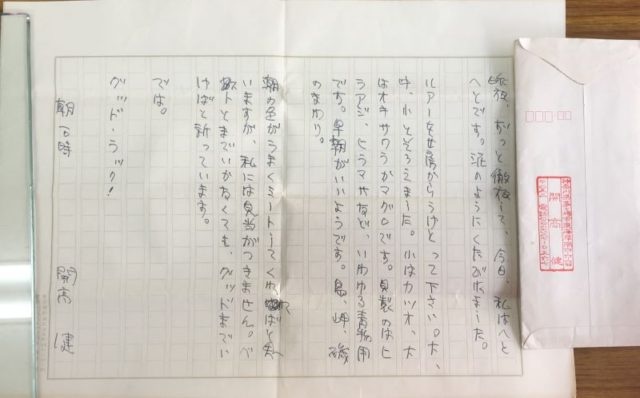 昨夜、ずっと徹夜して、今日、私はへと
へとです。泥のようにくたびれました。
ルアーを女房からうけとって下さい。大、
中、小とそろえました。小はカツオ、大
はオキサワラかマグロです。貝製のはヒ
ラアジ、ヒラマサなど、いわゆる青物用
です。早朝がいいようです。島、岬、磯
のまわり。
朝の色がうまくミートしてくれればと思
いますが、私には見当がつきません。ベ
ストとまでいかなくても、グッドまでい
けばと祈っています。
では。
グッド・ラック!
朝 時 開高 健
開高 健